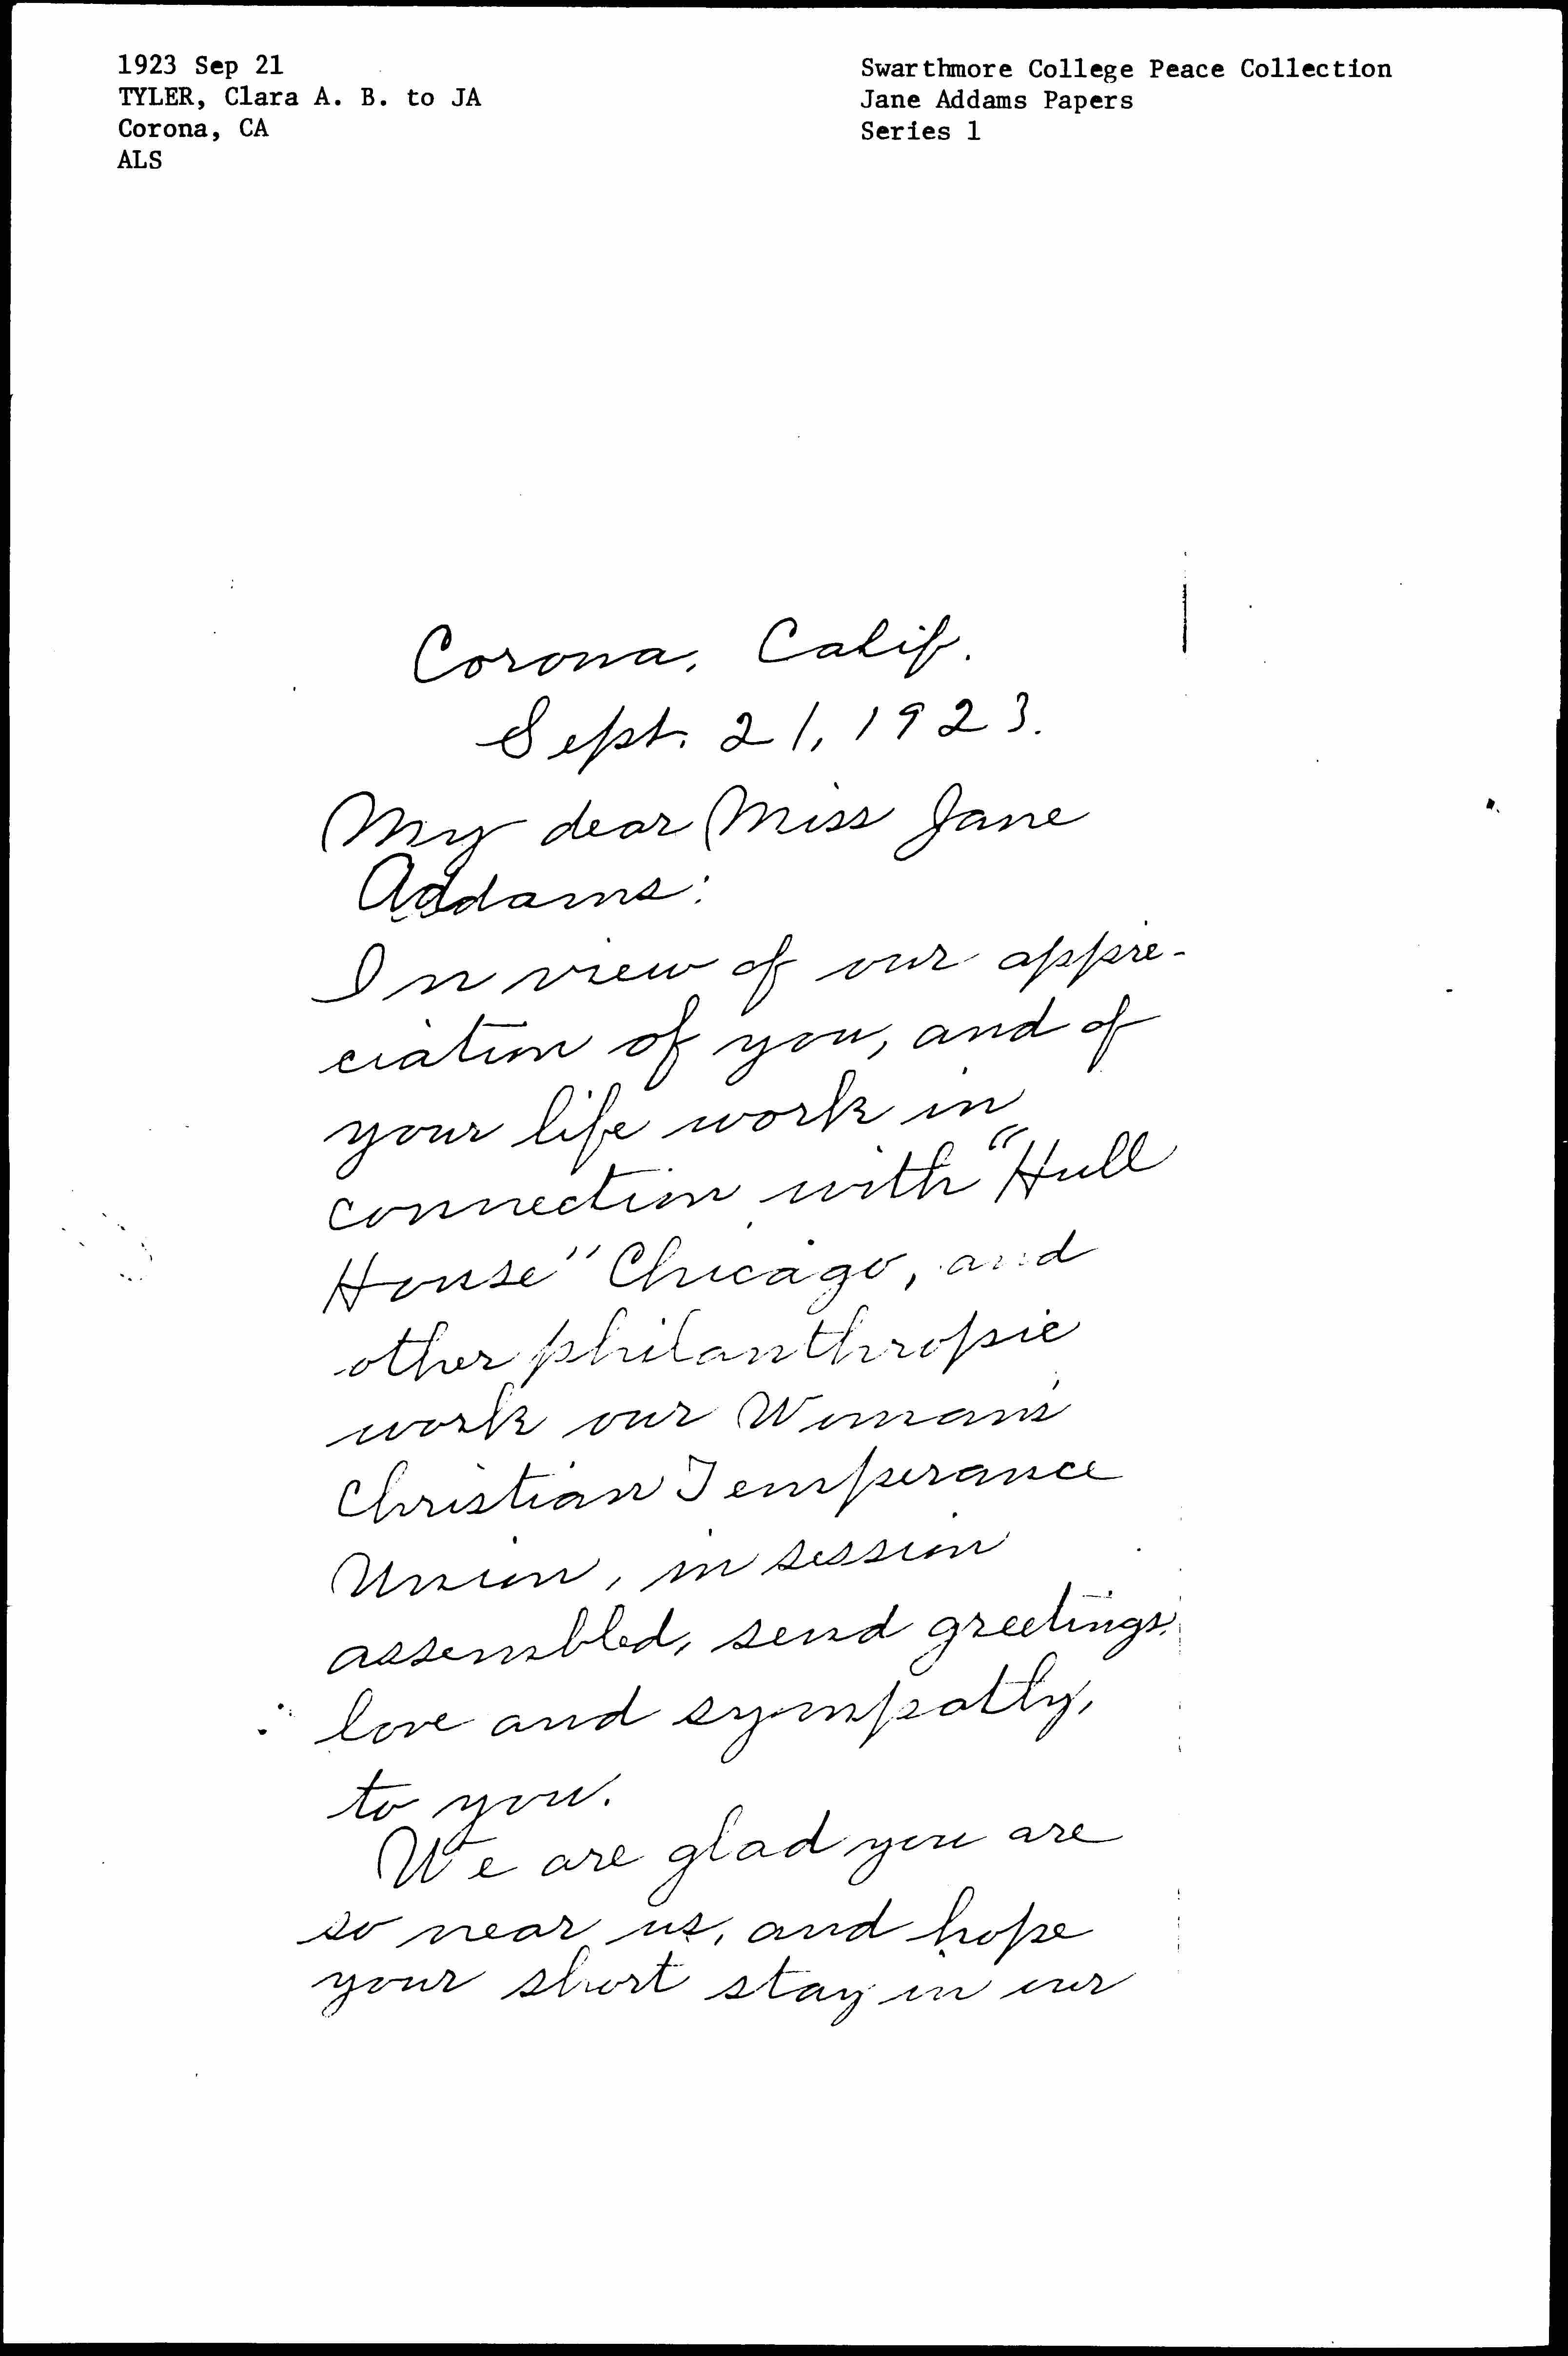 1923 Sep 21
TYLER, Clara A. B. to JA
Corona, CA
ALS
Swarthmore College Peace Collection
Jane Addams Papers
Series 1
Corona, Calif.
Sept. 21, 1923.
My dear Miss Jane
Addams:
In view of our appre-
ciation of you, and of
your life work in
connection with "Hull
House" Chicago, and
other philanthropic
work our Woman's
Christian Temperance
Union, in session
assembled, send greetings,
love and sympathy,
to you.
We are glad you are
so near us, and hope
your short stay in our